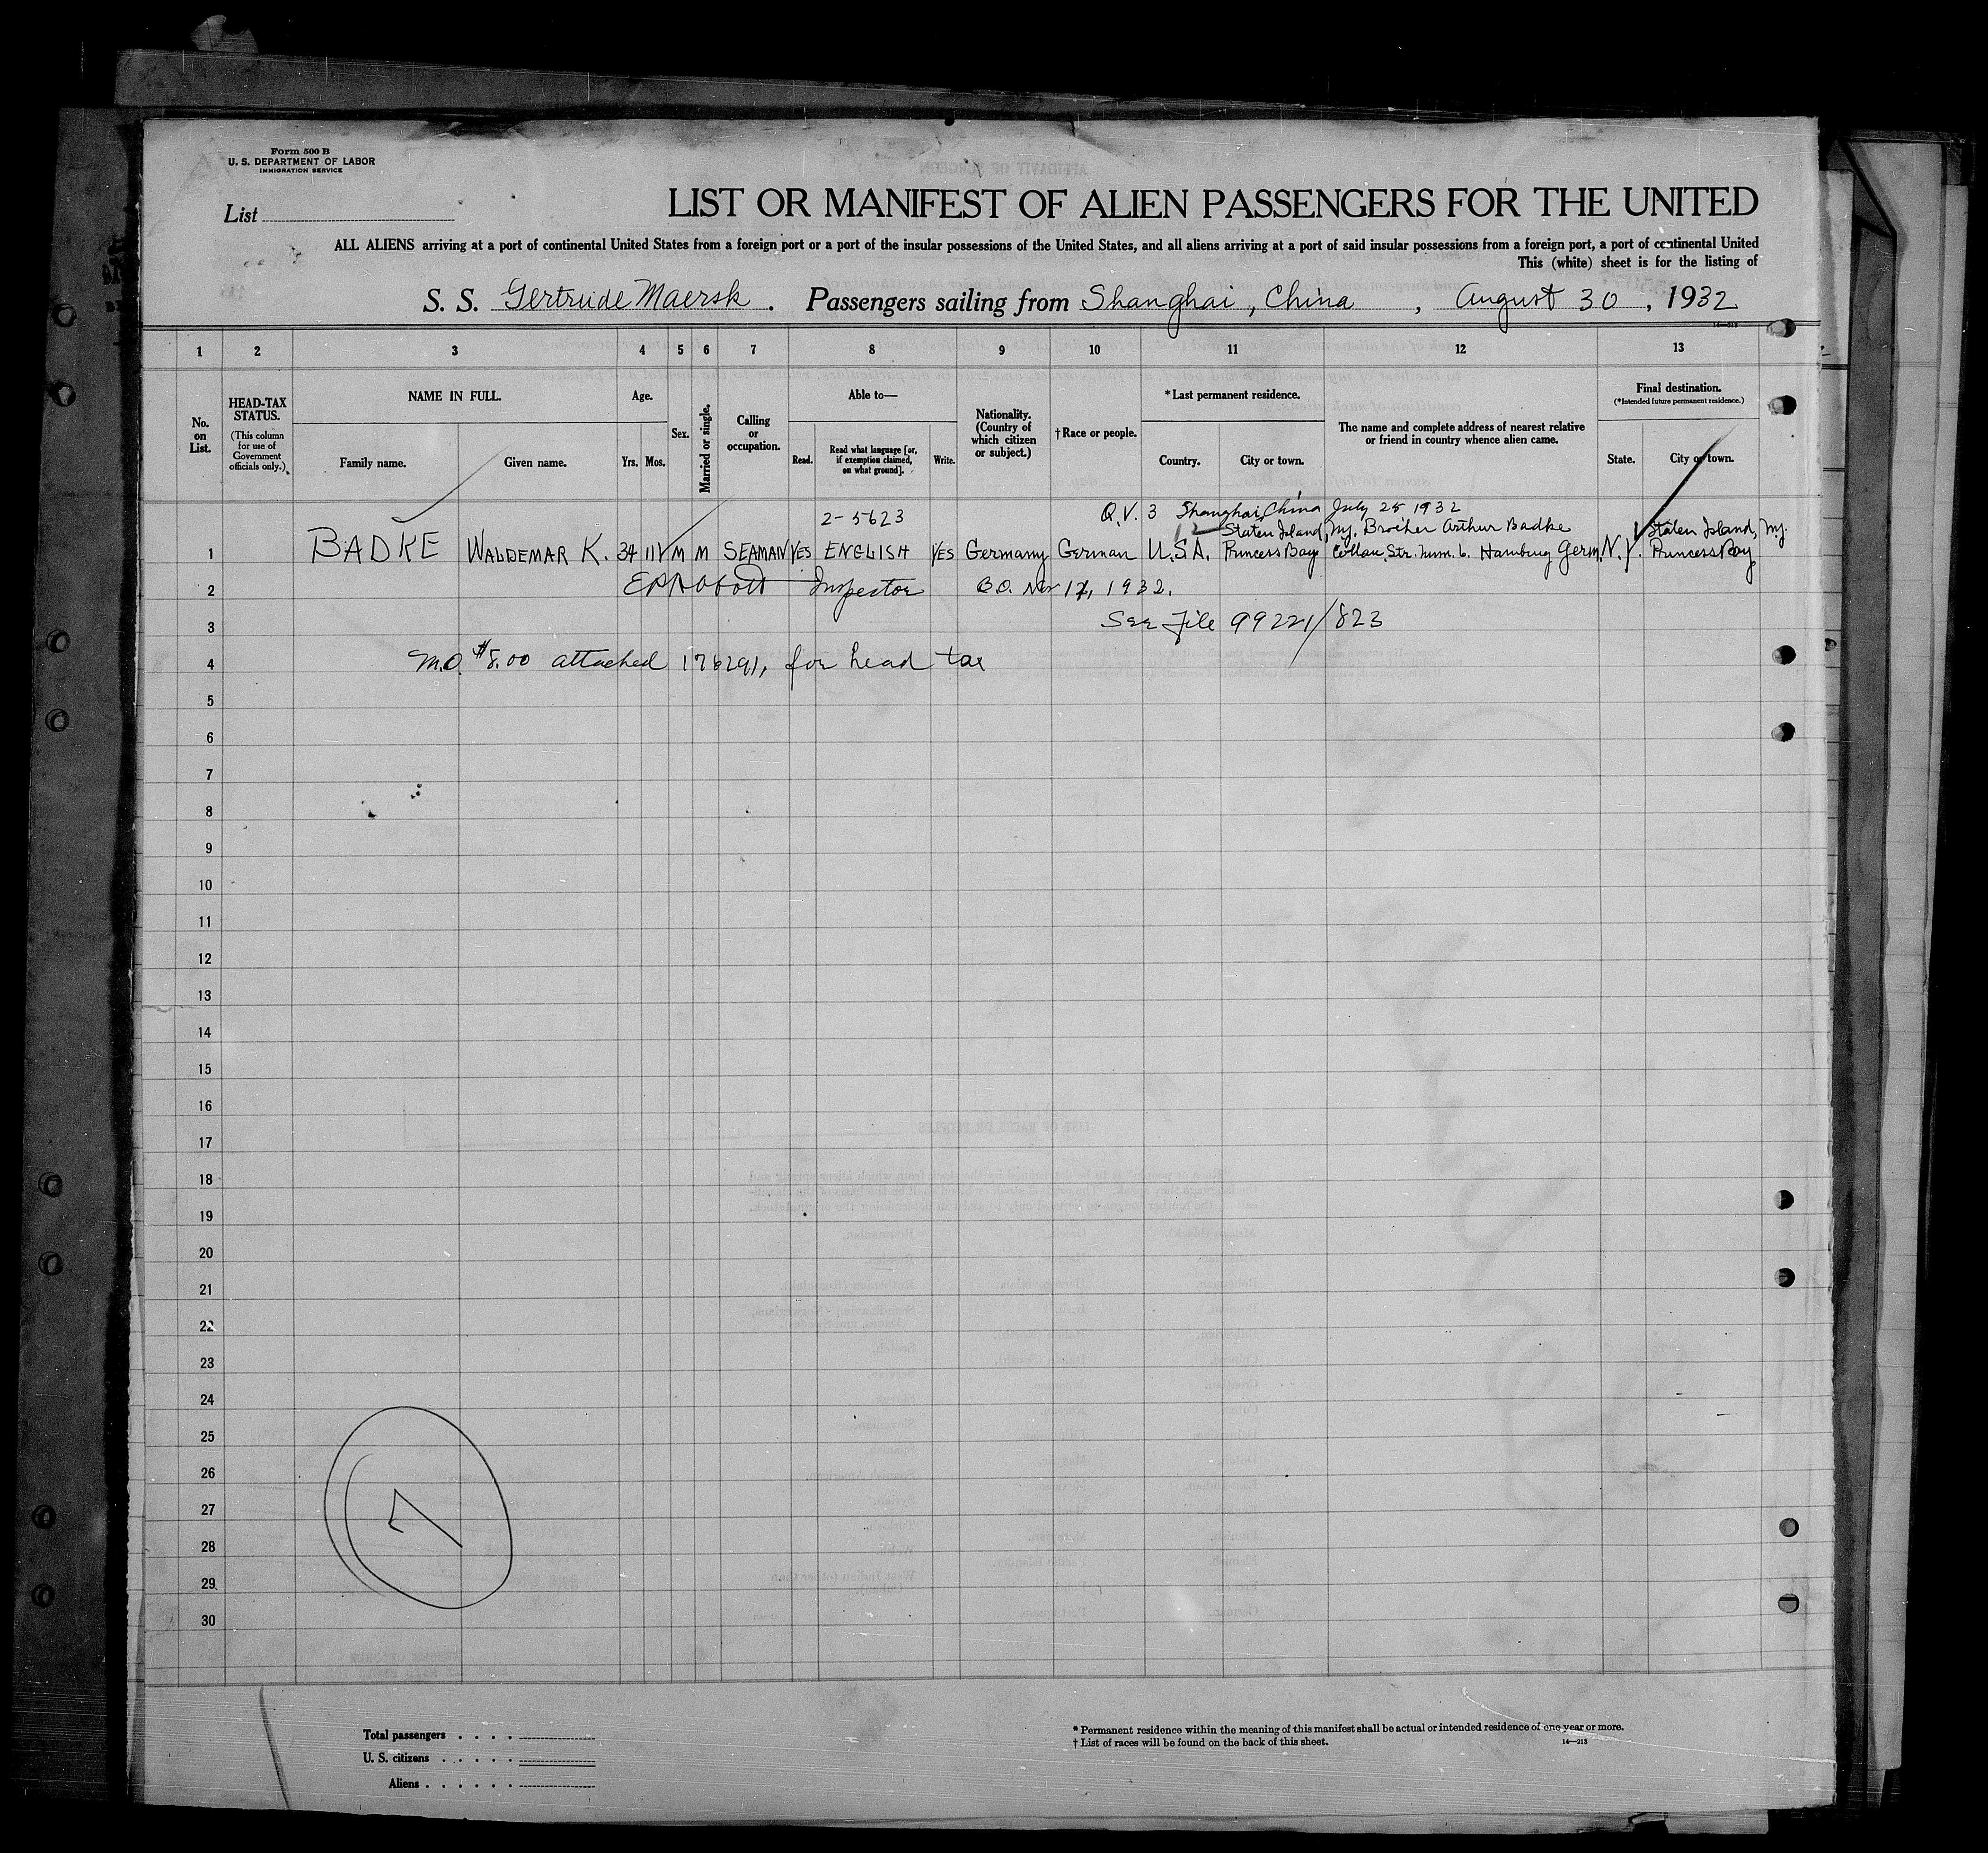 Form 500 B
U. S. DEPARTMENT OF LABOR
IMMIGRATION SERVICE
List
LIST OR MANIFEST OF ALIEN PASSENGERS FOR THE UNITED
ALL ALIENS arriving at a port of continental United States from a foreign port or a port of the insular possessions of the United States, and all aliens arriving at a port of said insular possessions from a foreign port, a port of continental United
This (white) sheet is for the listing of
S. S. Gertrude Maersk. Passengers sailing from Shanghai, China, August 30, 1932
14—213
1 2 3 4 5 6 7 8 9 10 11 12 13
No. on List.
HEAD-TAX STATUS.
(This column for use of Government officials only.)
NAME IN FULL.
Family name. Given name.
Age.
Yrs. Mos.
Sex.
Married or single.
Calling or occupation.
Able to—
Read. Read what language [or, if exemption claimed, on what ground]. Write.
Nationality. (Country of which citizen or subject.)
†Race or people.
*Last permanent residence.
Country. City or town.
The name and complete address of nearest relative or friend in country whence alien came.
Final destination.
(*Intended future permanent residence.)
State. City or town.
2-5623 Q.V. 3 Shanghai, China July 25 1932
Staten Island, Ny. Brother Arthur Badke Staten Island, Ny.
1 BADKE WALDEMAR K. 34 11 M M SEAMAN YES ENGLISH YES Germany German U.S.A. Princess Bay Str. Num. 6. Hamburg Germ. N.Y. Princess Bay
2 Inspector Nov 17, 1932.
3 See File 99221/823
4 M.O. $8.00 attached 176291, for head tax
5
6
7
8
9
10
11
12
13
14
15
16
17
18
19
20
21
22
23
24
25
26
27
28
29
30
7
Total passengers
U. S. citizens
Aliens
* Permanent residence within the meaning of this manifest shall be actual or intended residence of one year or more.
† List of races will be found on the back of this sheet.
14—213